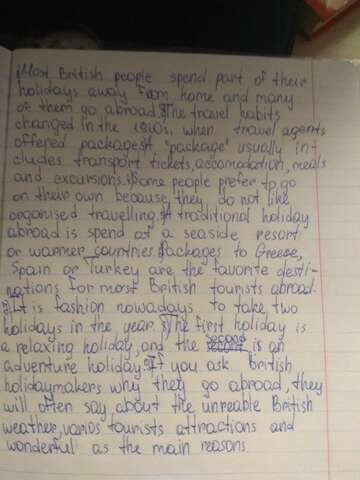 Most British people spend part of their
holidays away from home and many
of them go abroad. The travel habits
changed in the 1960s, when travel agents
offered packages. A "package" usually in-
cludes transport tickets, accomodation, meals
and excursions. Some people prefer to go
on their own because they do not like
organised travelling. A traditional holiday
abroad is spend at a seaside resort
or warmer countries. Packages to Greese,
Spain or Turkey are the favorite desti-
nations for most British tourists abroad.
It is fashion nowadays to take two
holidays in the year. The first holiday is
a relaxing holiday, and the second is an
adventure holiday. If you ask British
holidaymakers why they go abroad, they
will often say about the unreable British
weather, varios tourists attractions and
wonderful as the main reasons.